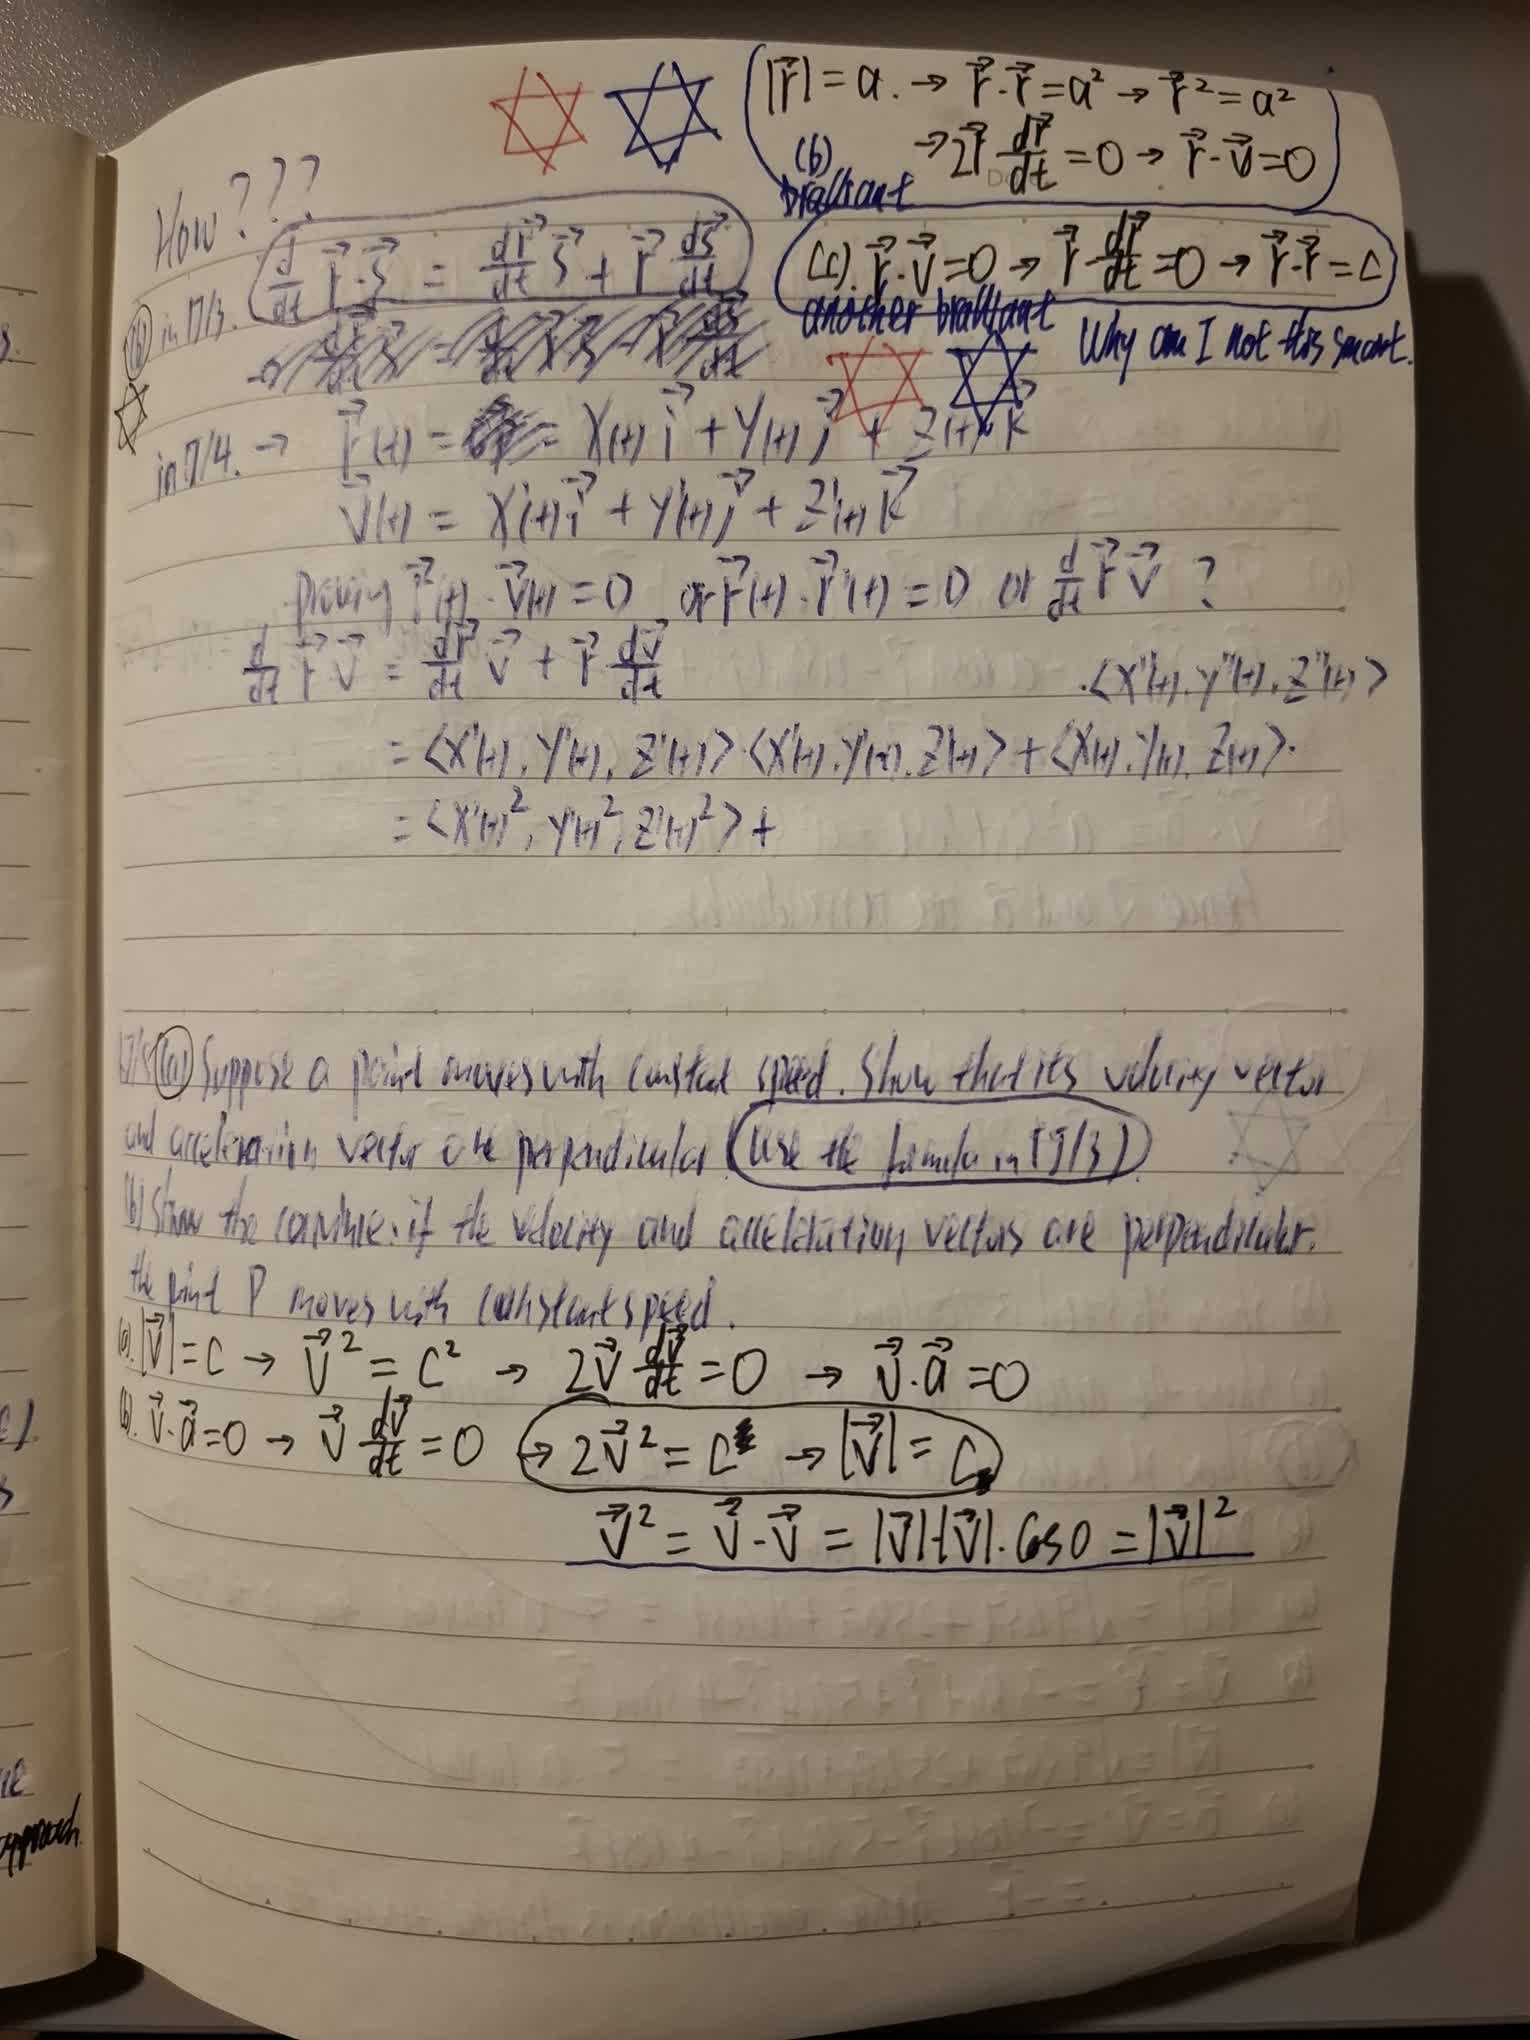 |r⃗| = a. → r⃗·r⃗ = a² → r⃗² = a²
(b) → 2r⃗ dr⃗/dt = 0 → r⃗·v⃗ = 0
braliant
How???
d/dt r⃗·s⃗ = dr⃗/dt s⃗ + r⃗ ds⃗/dt
(c). r⃗·v⃗ = 0 → r⃗·dr⃗/dt = 0 → r⃗·r⃗ = C
another braliant
Why am I not this smart.
(b) in 17/3.
in 17/4. → r⃗(t) = = x(t) i⃗ + y(t) j⃗ + z(t) k⃗
v⃗(t) = x'(t) i⃗ + y'(t) j⃗ + z'(t) k⃗
proving r⃗(t)·v⃗(t) = 0 or r⃗(t)·r⃗'(t) = 0 or d/dt r⃗ v⃗ ?
d/dt r⃗ v⃗ = dr⃗/dt v⃗ + r⃗ dv⃗/dt
·<x''(t), y''(t), z''(t)>
= <x'(t), y'(t), z'(t)>·<x'(t), y'(t), z'(t)> + <x(t), y(t), z(t)>·
= <x'(t)², y'(t)², z'(t)²> +
(a) Suppose a point moves with constant speed. Show that its velocity vector
and acceleration vector are perpendicular. (use the formula in 17/3)
(b) Show the converse: if the velocity and acceleration vectors are perpendicular.
the point P moves with constant speed.
(a). |v⃗| = c → v⃗² = c² → 2v⃗ dv⃗/dt = 0 → v⃗·a⃗ = 0
(b). v⃗·a⃗ = 0 → v⃗ dv⃗/dt = 0 → 2v⃗² = c → |v⃗| = c
v⃗² = v⃗·v⃗ = |v⃗|·|v⃗|·cos0 = |v⃗|²
approach.